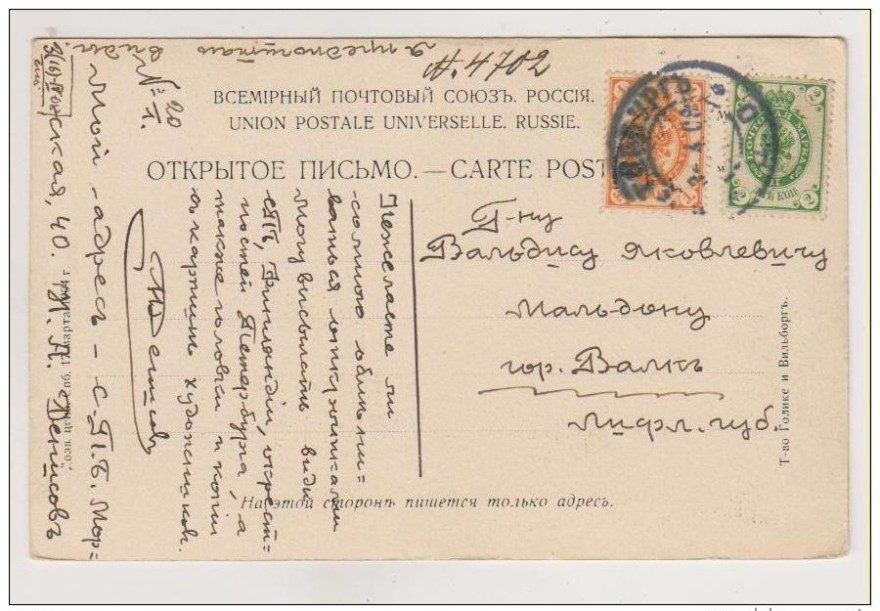 А. 4702
ВСЕМІРНЫЙ ПОЧТОВЫЙ СОЮЗЪ. РОССІЯ.
UNION POSTALE UNIVERSELLE. RUSSIE.
ОТКРЫТОЕ ПИСЬМО.—CARTE POST
Г-ну
Вальдису Яковлевичу
Мальдону
гор. Валкъ
Лифл. губ.
Нежелаете ли
со мною обмѣни=
ваться открытками
Могу высылать виды
СПБ, Финляндіи, окрест=
ностей Петербурга, а
также головки и копіи
съ картинъ художниковъ.
МДенисов
№ 20
1.
Мой адресъ – С.П.Б. Мор=
ская, 40. М. А. Денисовъ
я предпочитаю
виды
На этой сторонѣ пишется только адресъ.
Т-во Голике и Вильборгъ.